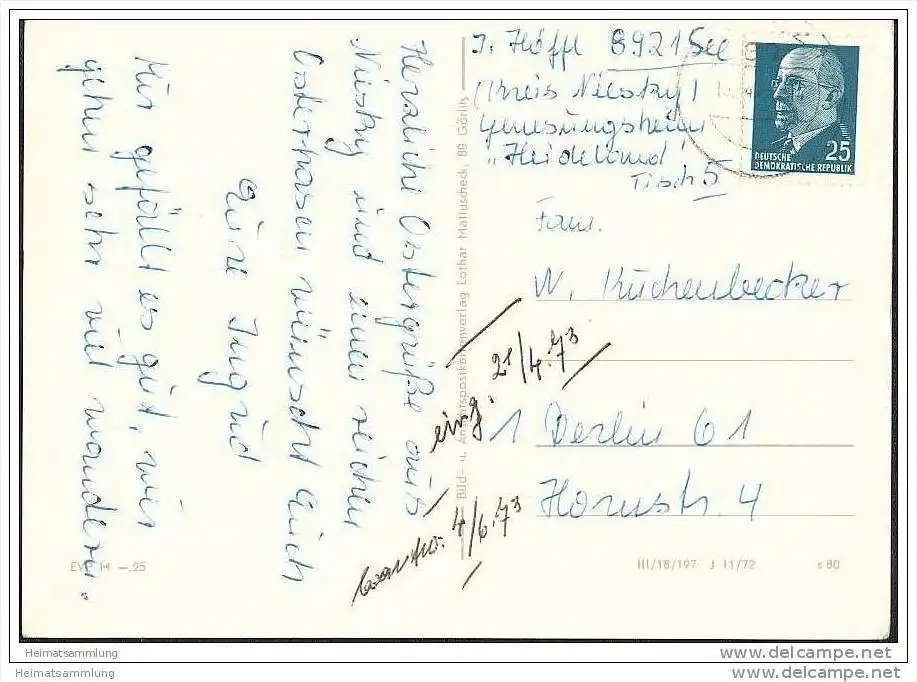 J. Höffl 8921 See
(Kreis Niesky)
Genesungsheim
"Heideland"
Tisch 5
DEUTSCHE
DEMOKRATISCHE REPUBLIK
25
Fam.
W. Küchenbecker
1 Berlin 61
Hornstr. 4
Herzliche Ostergrüße aus
Niesky und einen reichen
Osterhasen wünscht Euch
Eure Ingrid
Mir gefällt es gut, wir
gehen sehr viel wandern.
eing. 21/4.73
beantw. 4/6.73
Bild- u. Ansichtspostkartenverlag Lothar Matluscheck, 89 Görlitz
EVP M —.25
III/18/197 J 11/72
s 80
Heimatsammlung
Heimatsammlung
www.delcampe.net
www.delcampe.net